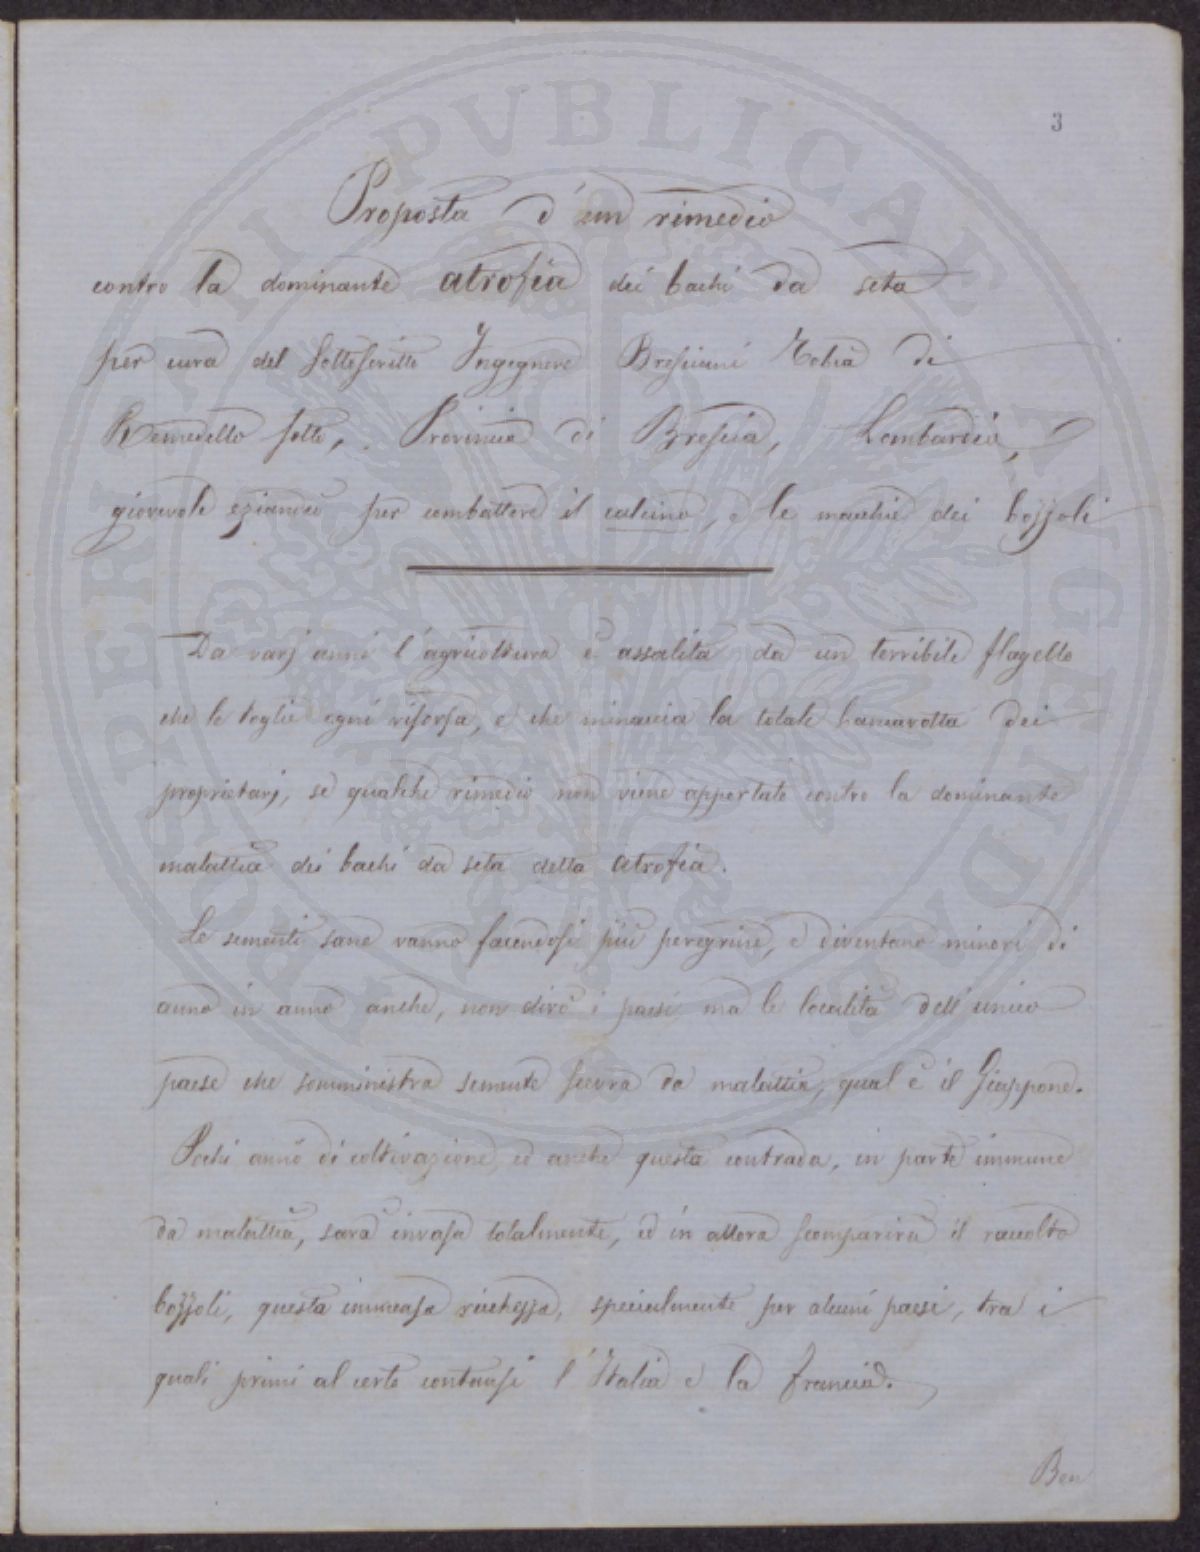 3
Proposta d'un rimedio
contro la dominante atrofia dei bachi da seta
per cura del Sottoscritto Ingegnere Bresciani Tobia di
Remedello Sotto, Provincia di Brescia, Lombardia,
giovevole eziandio per combattere il calcino, e le macchie dei bozzoli
Da varj anni l'agricoltura è assalita da un terribile flagello
che le toglie ogni risorsa, e che minaccia la totale bancarotta dei
proprietarj, se qualche rimedio non viene apportato contro la dominante
malattia dei bachi da seta detta atrofia.
Le sementi sane vanno facendosi più peregrine, e diventano minori di
anno in anno anche, non dirò i paesi ma le località dell'unico
paese che somministra semente scevra da malattia, qual è il Giappone.
Pochi anni di coltivazione, ed anche questa contrada, in parte immune
da malattia, sarà invasa totalmente, ed in allora scomparirà il raccolto
bozzoli, questa immensa ricchezza, specialmente per alcuni paesi, tra i
quali primi al certo contansi l'Italia e la Francia.
Ben
ROSPERITATI PVBLICAE AVGENDAE